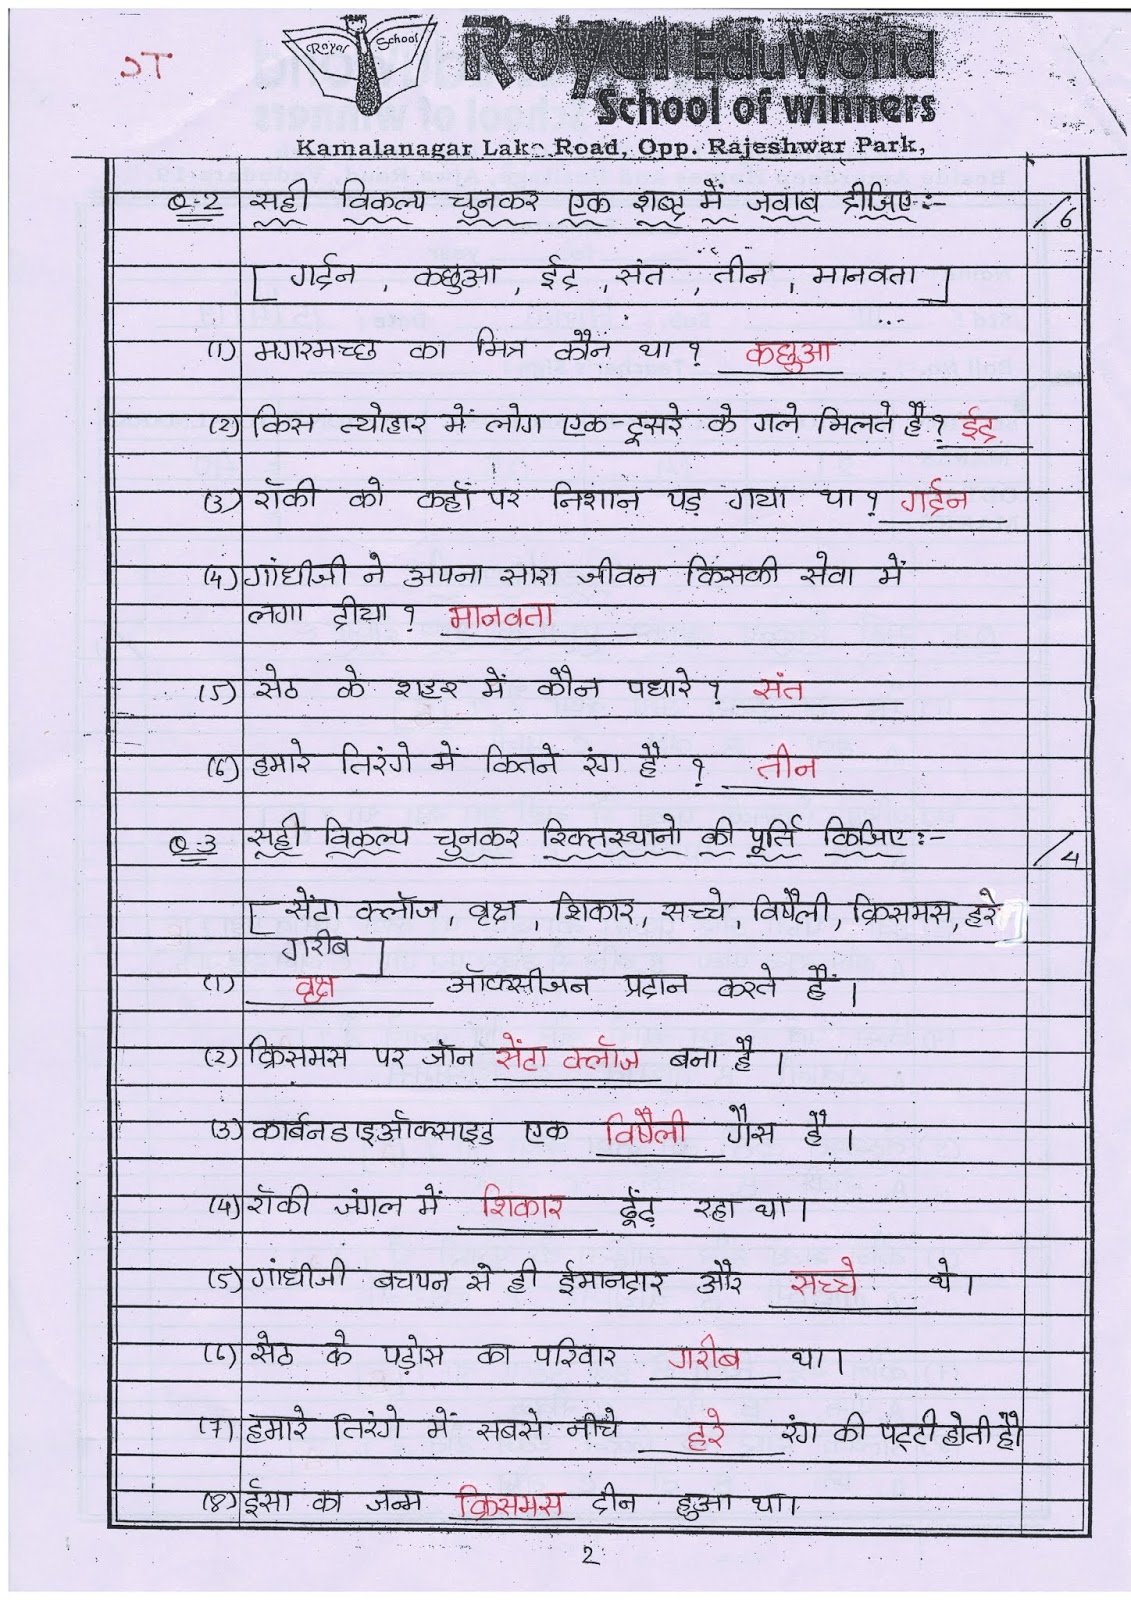 JC
Royal School
Royal EduWorld
School of winners
Kamalanagar Lake Road, Opp. Rajeshwar Park,
Q-2 सही विकल्प चुनकर एक शब्द में जवाब दीजिए:- /6
[ गर्दन , कछुआ , ईद , संत , तीन , मानवता ]
(1) मगरमच्छ का मित्र कौन था? कछुआ
(2) किस त्योहार में लोग एक-दूसरे के गले मिलते है? ईद
(3) रॉकी को कहाँ पर निशान पड़ गया था? गर्दन
(4) गांधीजी ने अपना सारा जीवन किसकी सेवा में
लगा दीया? मानवता
(5) सेठ के शहर में कौन पधारे? संत
(6) हमारे तिरंगे में कितने रंग है ? तीन
Q-3 सही विकल्प चुनकर रिक्तस्थानो की पूर्ति किजिए:- /4
[ सेंटा क्लॉज, वृक्ष, शिकार, सच्चे, विषैली, क्रिसमस, हरे
गरीब ]
(1) वृक्ष ऑक्सीजन प्रदान करते हैं।
(2) क्रिसमस पर जॉन सेंटा क्लॉज बना है।
(3) कार्बनडाइऑक्साइड एक विषैली गैस है।
(4) रॉकी जंगल में शिकार ढूंढ़ रहा था।
(5) गांधीजी बचपन से ही ईमानदार और सच्चे थे।
(6) सेठ के पड़ोस का परिवार गरीब था।
(7) हमारे तिरंगे में सबसे नीचे हरे रंग की पट्टी होती है।
(8) ईसा का जन्म क्रिसमस दीन हुआ था।
2